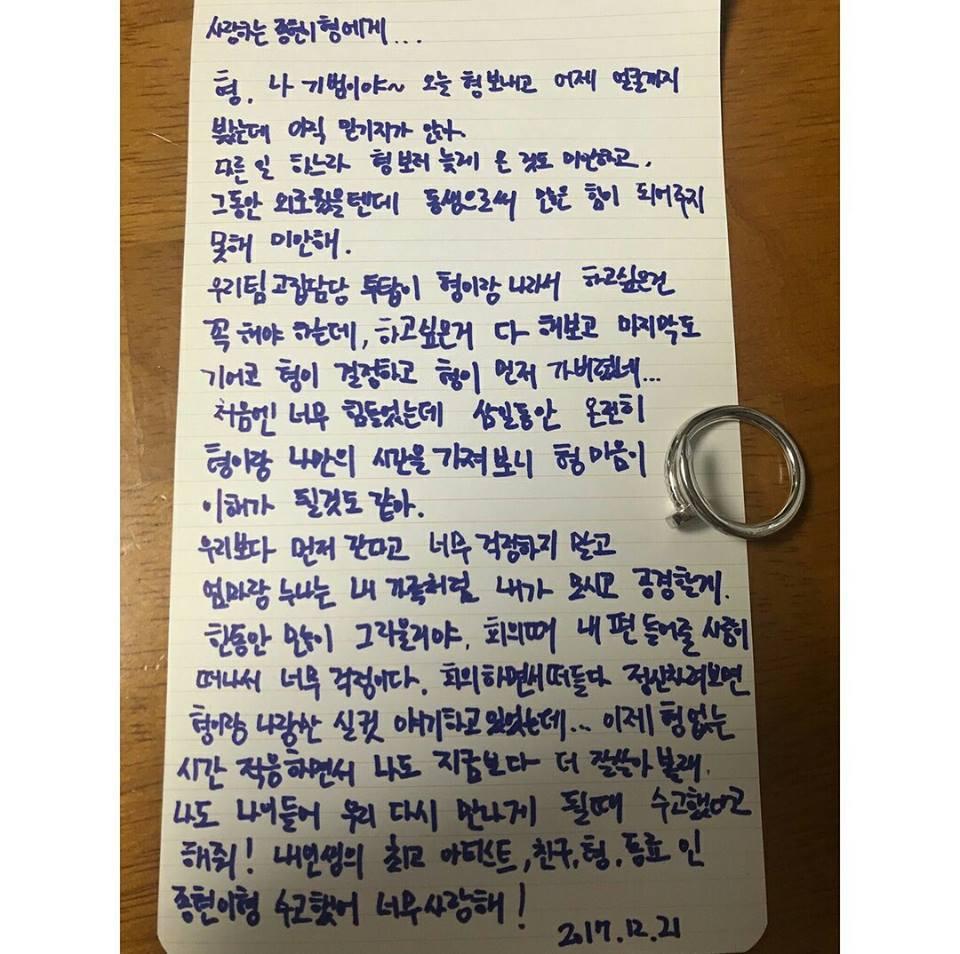 사랑하는 종현이형에게...
형. 나 기범이야~ 오늘 형 보내고 어제 얼굴까지
봤는데 아직 믿기지가 않아.
다른 일 하느라 형보러 늦게 온 것도 미안하고,
그동안 외로웠을텐데 동생으로써 많은 힘이 되어주지
못해 미안해.
우리팀 고집담당 투탑이 형이랑 나라서 하고싶은건
꼭 해야 하는데, 하고싶은거 다 해보고 마지막도
기어코 형이 결정하고 형이 먼저 가버렸네...
처음엔 너무 힘들었는데 삼일동안 온전히
형이랑 나만의 시간을 가져보니 형 마음이
이해가 될것도 같아.
우리보다 먼저 간다고 너무 걱정하지 말고
엄마랑 누나는 내 가족처럼 내가 모시고 공경할게.
한동안 많이 그리울거야. 회의때 내 편 들어줄 사람이
떠나서 너무 걱정이다. 회의하면서 떠들다 정신차려보면
형이랑 나랑만 실컷 얘기하고 있었는데... 이제 형 없는
시간 적응하면서 나도 지금보다 더 잘살아 볼래.
나도 나이들어 우리 다시 만나게 될때 수고했다고
해줘! 내인생의 최고 아티스트, 친구, 형, 동료 인
종현이형 수고했어 너무 사랑해!
2017.12.21